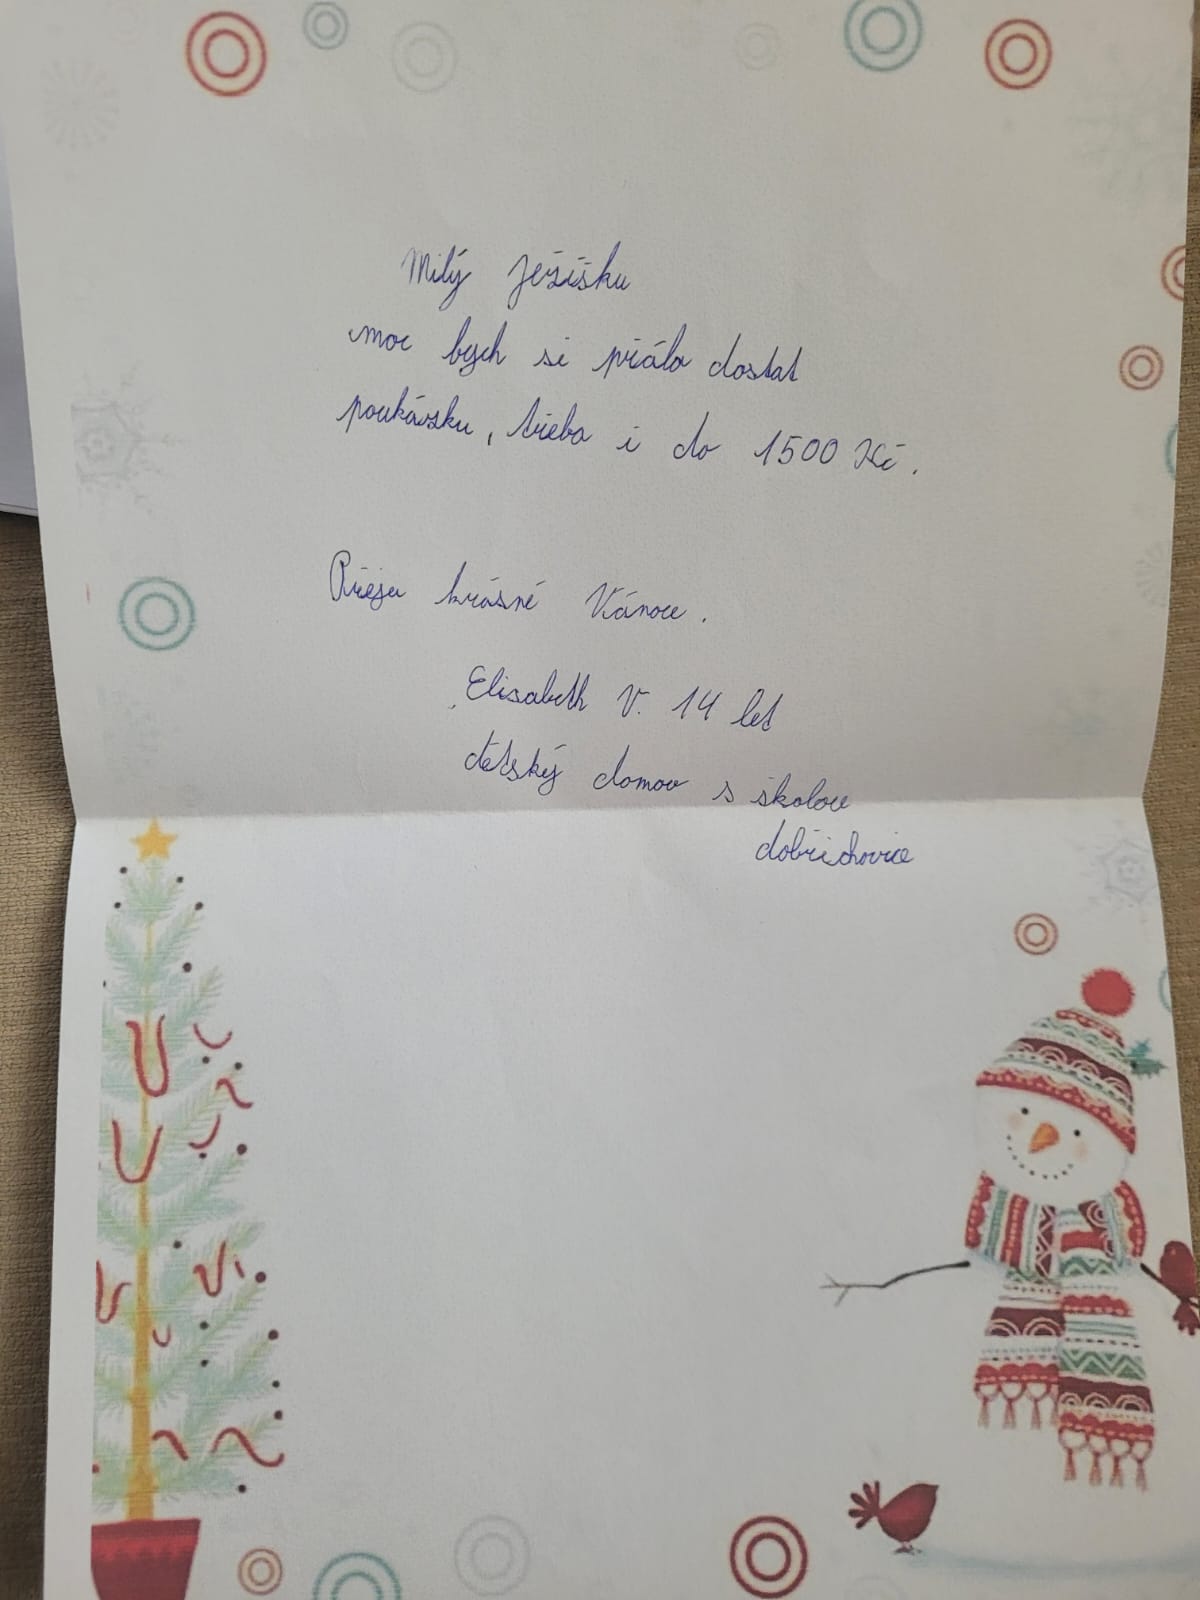 Milý Ježíšku
moc bych si přála dostat
poukázku, třeba i do 1500 Kč.
Přeju krásné Vánoce.
Elisabeth V. 14 let
dětský domov s školou
dobřichovice